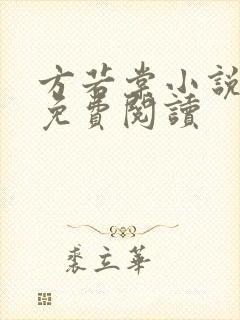 方若棠小説
免費閱讀
裘立華